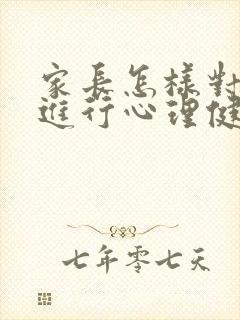 家長怎樣對
進行心理健
七年零七天